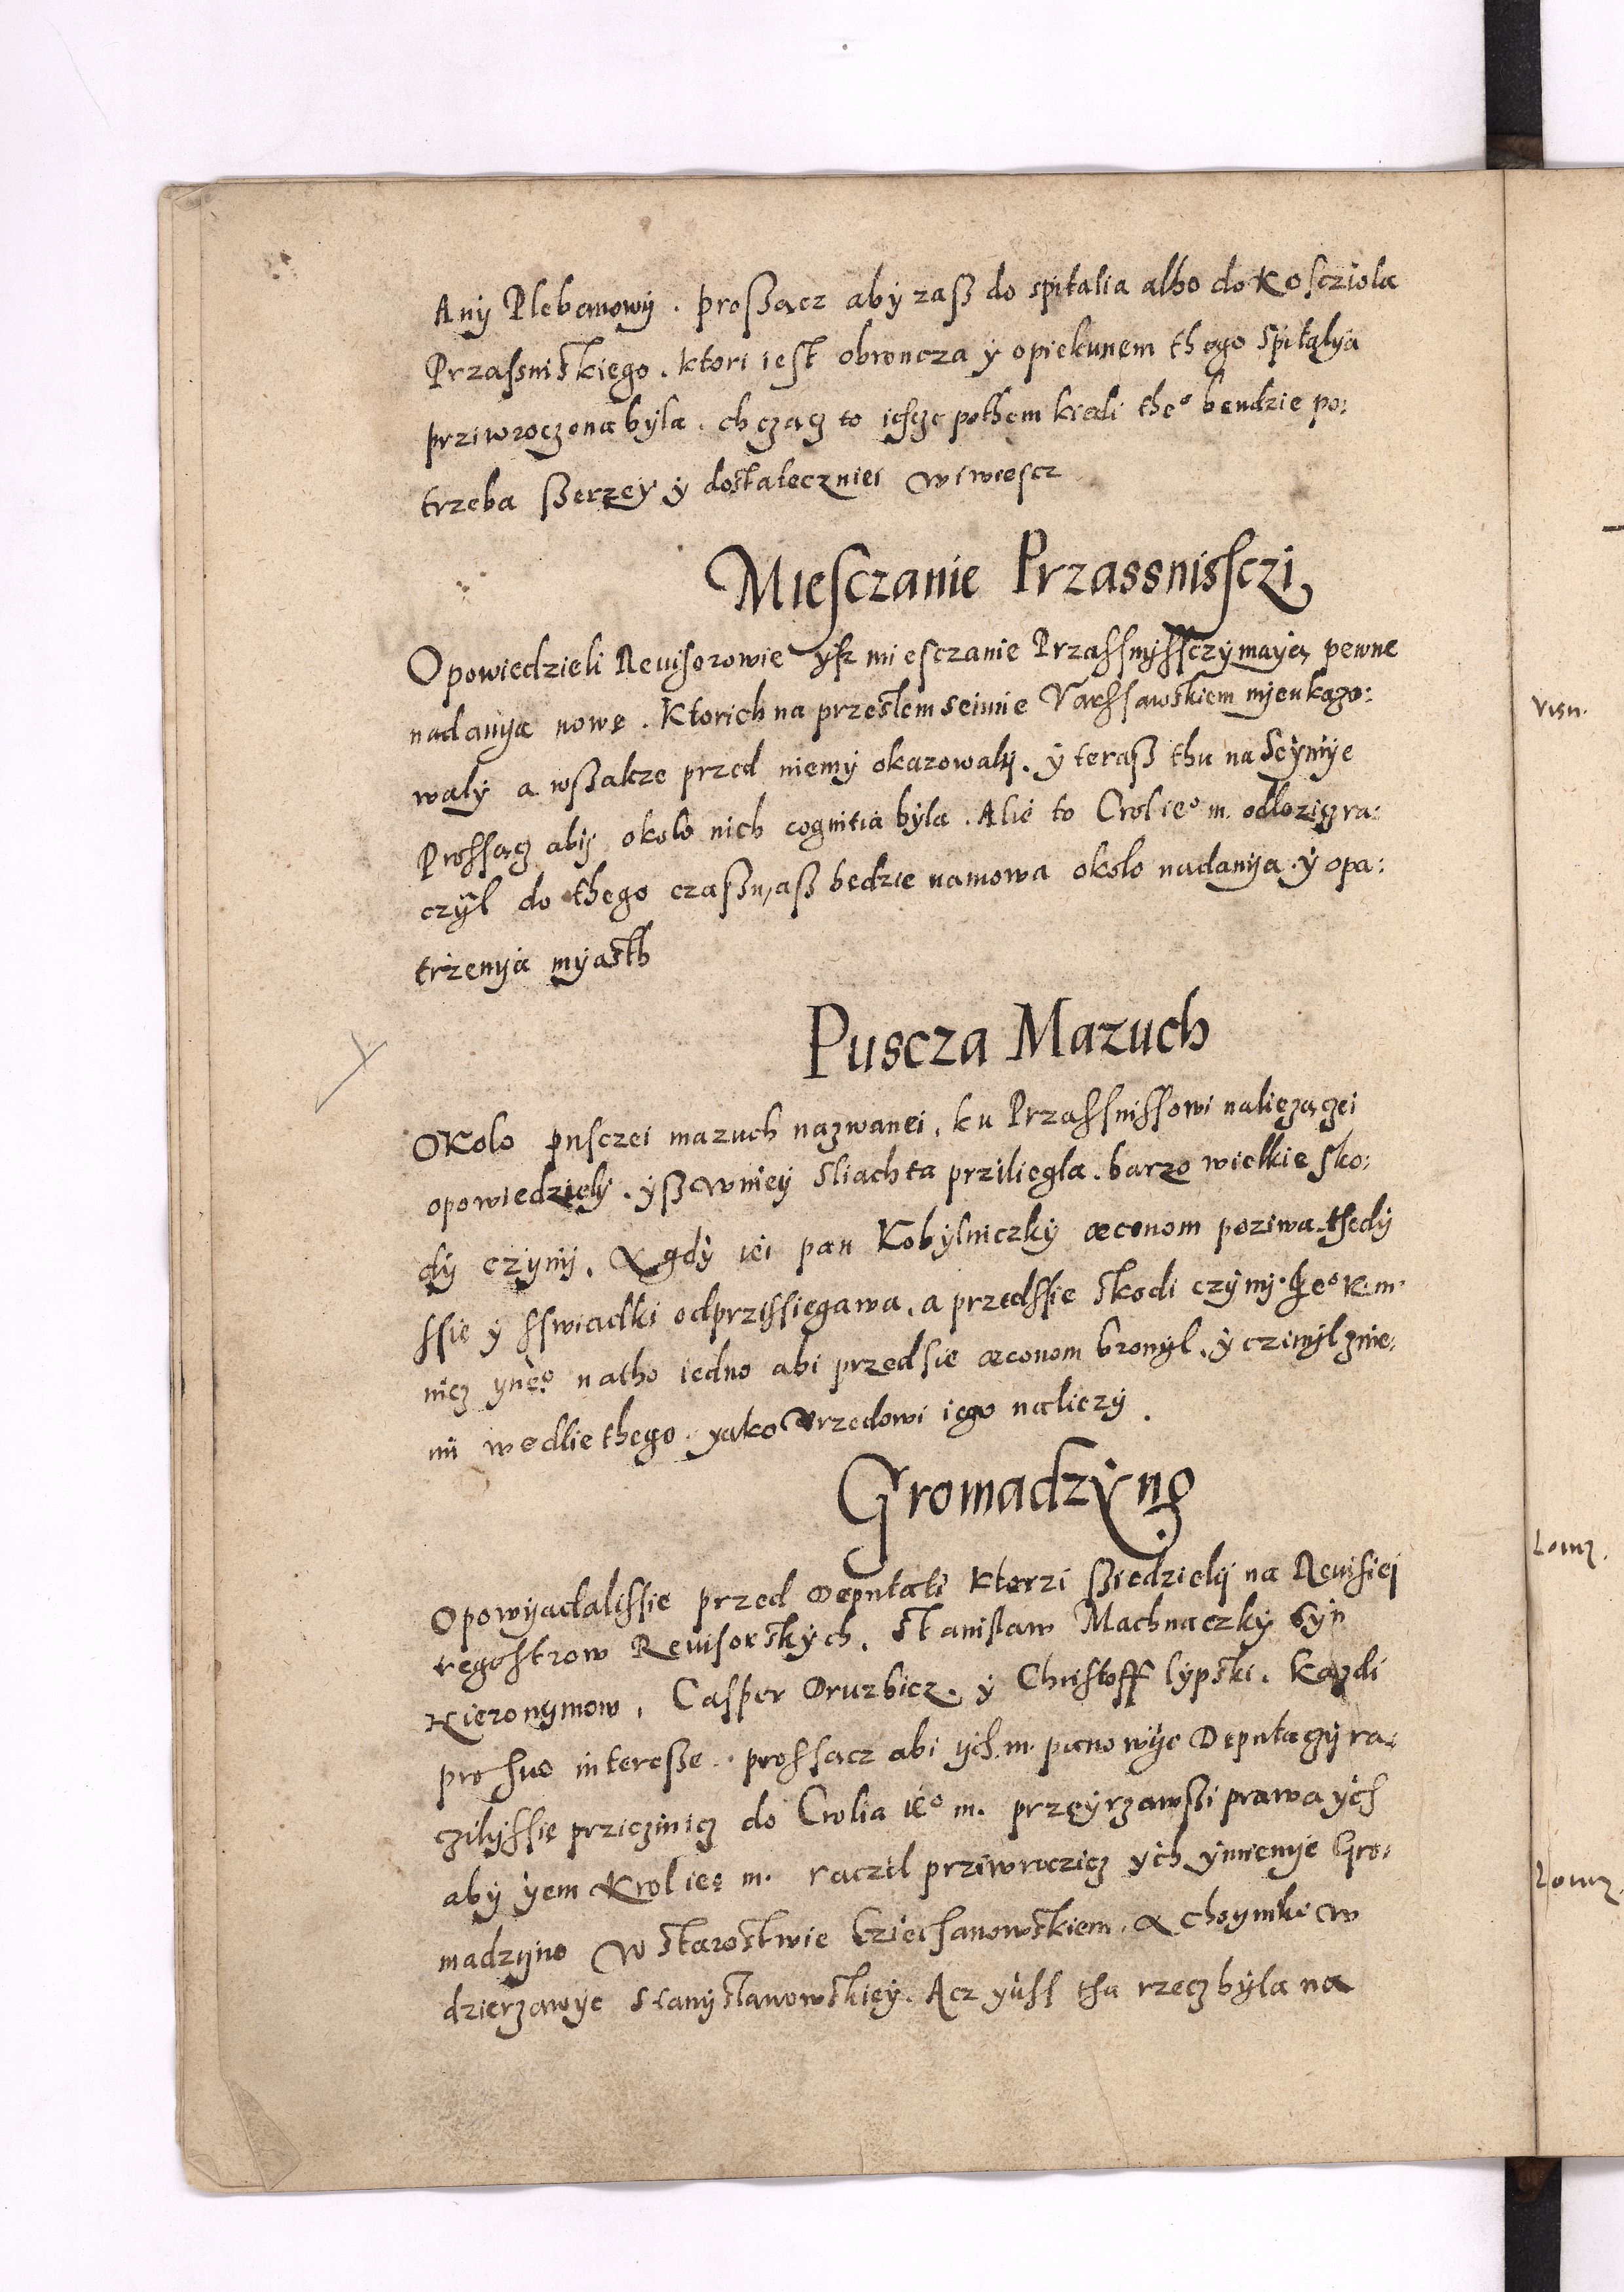 Any Plebanowy. proßacz aby zaß do spitalia albo do Kosczioła
Przasniskiego. ktori iest obroncza y opiekunem thego spitalya
przywroczona byla. chczącz to iescze pothem kiedi the° bendzie po:
trzeba ßerzey y dostateczniei wiwiescz
Miesczanie Przassnissczi
Opowiedzieli Revisorowie yß miesczanie Przassnyssczy mayą pewne
nadanya nowe. Ktorich na przeslem seimie Varssawskiem nyeukązo:
waly a wßakze przed niemy okazowaly. y teraß thu na Seymye
Prossącz aby około nich cognitia byla. Alie to Crol ie° m. odlozicz ra:
czyl do thego czaßu, aß bedzie namowa około nadanya y opa:
trzenya myasth
Puscza Mazuch
Okolo pusczei mazuch nazwanei, ku Przassnissowi nalieżączei
opowiedziely. yß w niey sliachta priliegla. barzo wielkie sko:
dy czyny. A gdy iei pan Kobylniczky œconom poziwa thedy
ssie y sswiadki odprzissiegawa, a przedssie skodi czyny. Je° K. m.
nicz yne° natho iedno abi przedsie œconom bronyl, y czinyl znie:
mi wedlie thego. yako Vrzedowi iego naliezy.
Gromadzyno
Opowyadalissie przed Deputati ktorzi ßiedziely na Revisiei
regestrow Revisorskych, Stanislaw Machnaczky Syn
Hieronymow, Casper Druzbicz. y Christoff lypski. kazdi
pro suo interesse. prossacz abi ych m. panowye Deputaczy ra:
czilyssie przicziniez do Crolia ie° m. przeyrzawßi prawa ych
aby yem Krol ie° m. raczil przywroczicz ych ymienye Gro:
madzyno w starostwie Cziechanowskiem. A choynki w
dzierzawye stanyslanowskiey. Acz yuss tha rzecz była na